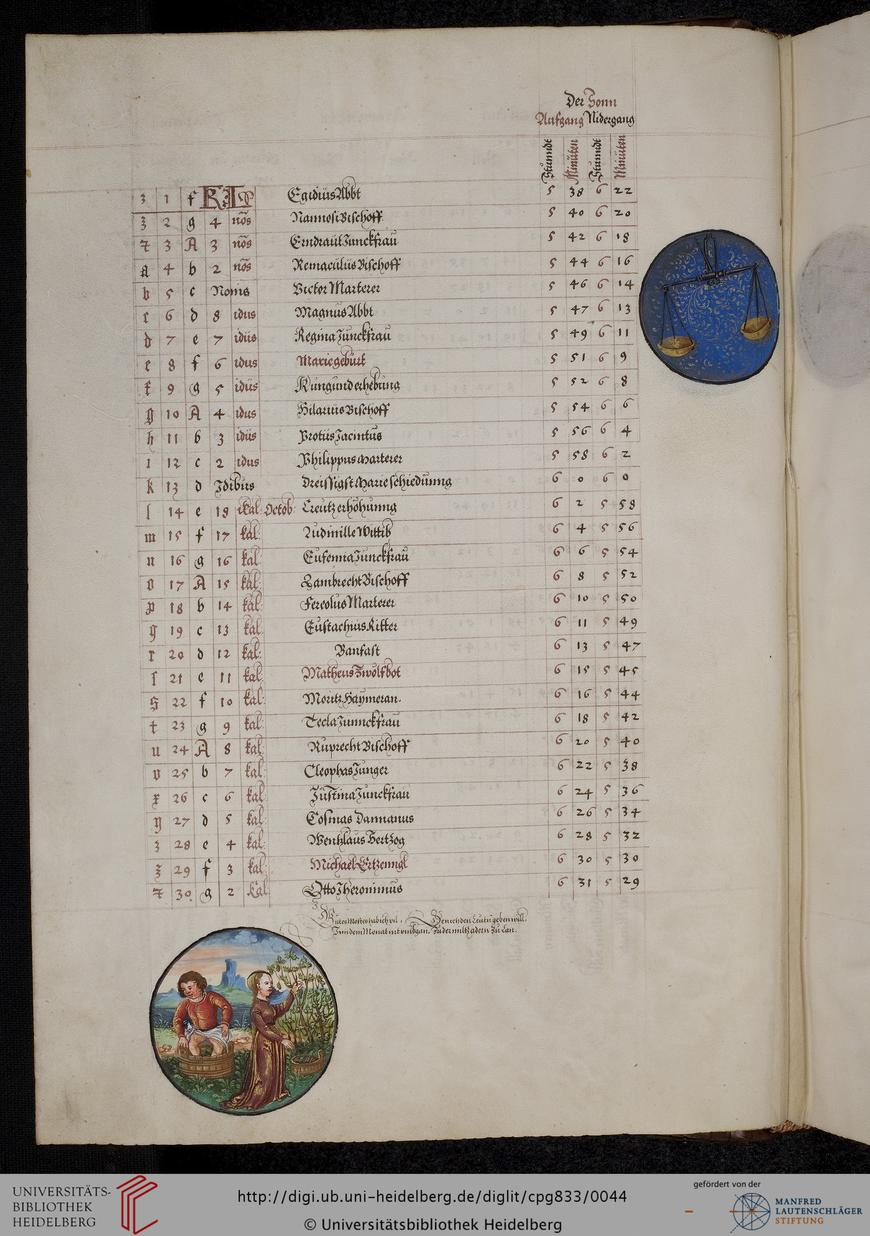 Der Sonn
Aufgang Nidergang
Stundt Minuten Stundt Minuten
3 1 f KL Egidius Abbt 5 38 6 22
z 2 g 4 nos Nannosi Bischoff 5 40 6 20
7 3 A 3 nos Erndraut Junckfrau 5 42 6 18
a 4 b 2 nos Remaculus Bischoff 5 44 6 16
b 5 c Nonis Victor Marterer 5 46 6 14
c 6 d 8 idus Magnus Abbt 5 47 6 13
d 7 e 7 idus Regina Junckfrau 5 49 6 11
e 8 f 6 idus Marie geburt 5 51 6 9
f 9 g 5 idus Kungund erhebung 5 52 6 8
g 10 A 4 idus Hilarius Bischoff 5 54 6 6
h 11 b 3 idus Protus Jacintus 5 56 6 4
i 12 c 2 idus Philippus Marterer 5 58 6 2
k 13 d Idibus Dreissigst Marie schiedunng 6 0 6 0
l 14 e 18 kal Octob: Creutz erhöhunng 6 2 5 58
m 15 f 17 kal: Ludmille Wittib 6 4 5 56
n 16 g 16 kal: Eufemia Junckfrau 6 6 5 54
o 17 A 15 kal: Lambrecht Bischoff 6 8 5 52
p 18 b 14 kal: Fereolus Marterer 6 10 5 50
q 19 c 13 kal: Eustachius Ritter 6 11 5 49
r 20 d 12 kal: Banfast 6 13 5 47
s 21 e 11 kal: Matheus Zwölfbot 6 15 5 45
s 22 f 10 kal: Moritz Haymeran. 6 16 5 44
t 23 g 9 kal: Tecla Junnckfrau 6 18 5 42
u 24 A 8 kal: Ruprecht Bischoff 6 20 5 40
v 25 b 7 kal: Cleophas Junger 6 22 5 38
x 26 c 6 kal Justina Junckfrau 6 24 5 36
y 27 d 5 kal: Cosmas Damianus 6 26 5 34
z 28 e 4 kal: Wentzlaus Hertzog 6 28 5 32
z 29 f 3 kal: Michael Ertzenngl 6 30 5 30
7 30. g 2 kal: Otto Jheronimus 6 31 5 29
Guter Mostes hab ich vil. Den ich den Leuten geben will.
UNIVERSITÄTS-
BIBLIOTHEK
HEIDELBERG
http://digi.ub.uni-heidelberg.de/diglit/cpg833/0044
© Universitätsbibliothek Heidelberg
gefördert von der
MANFRED
LAUTENSCHLÄGER
STIFTUNG